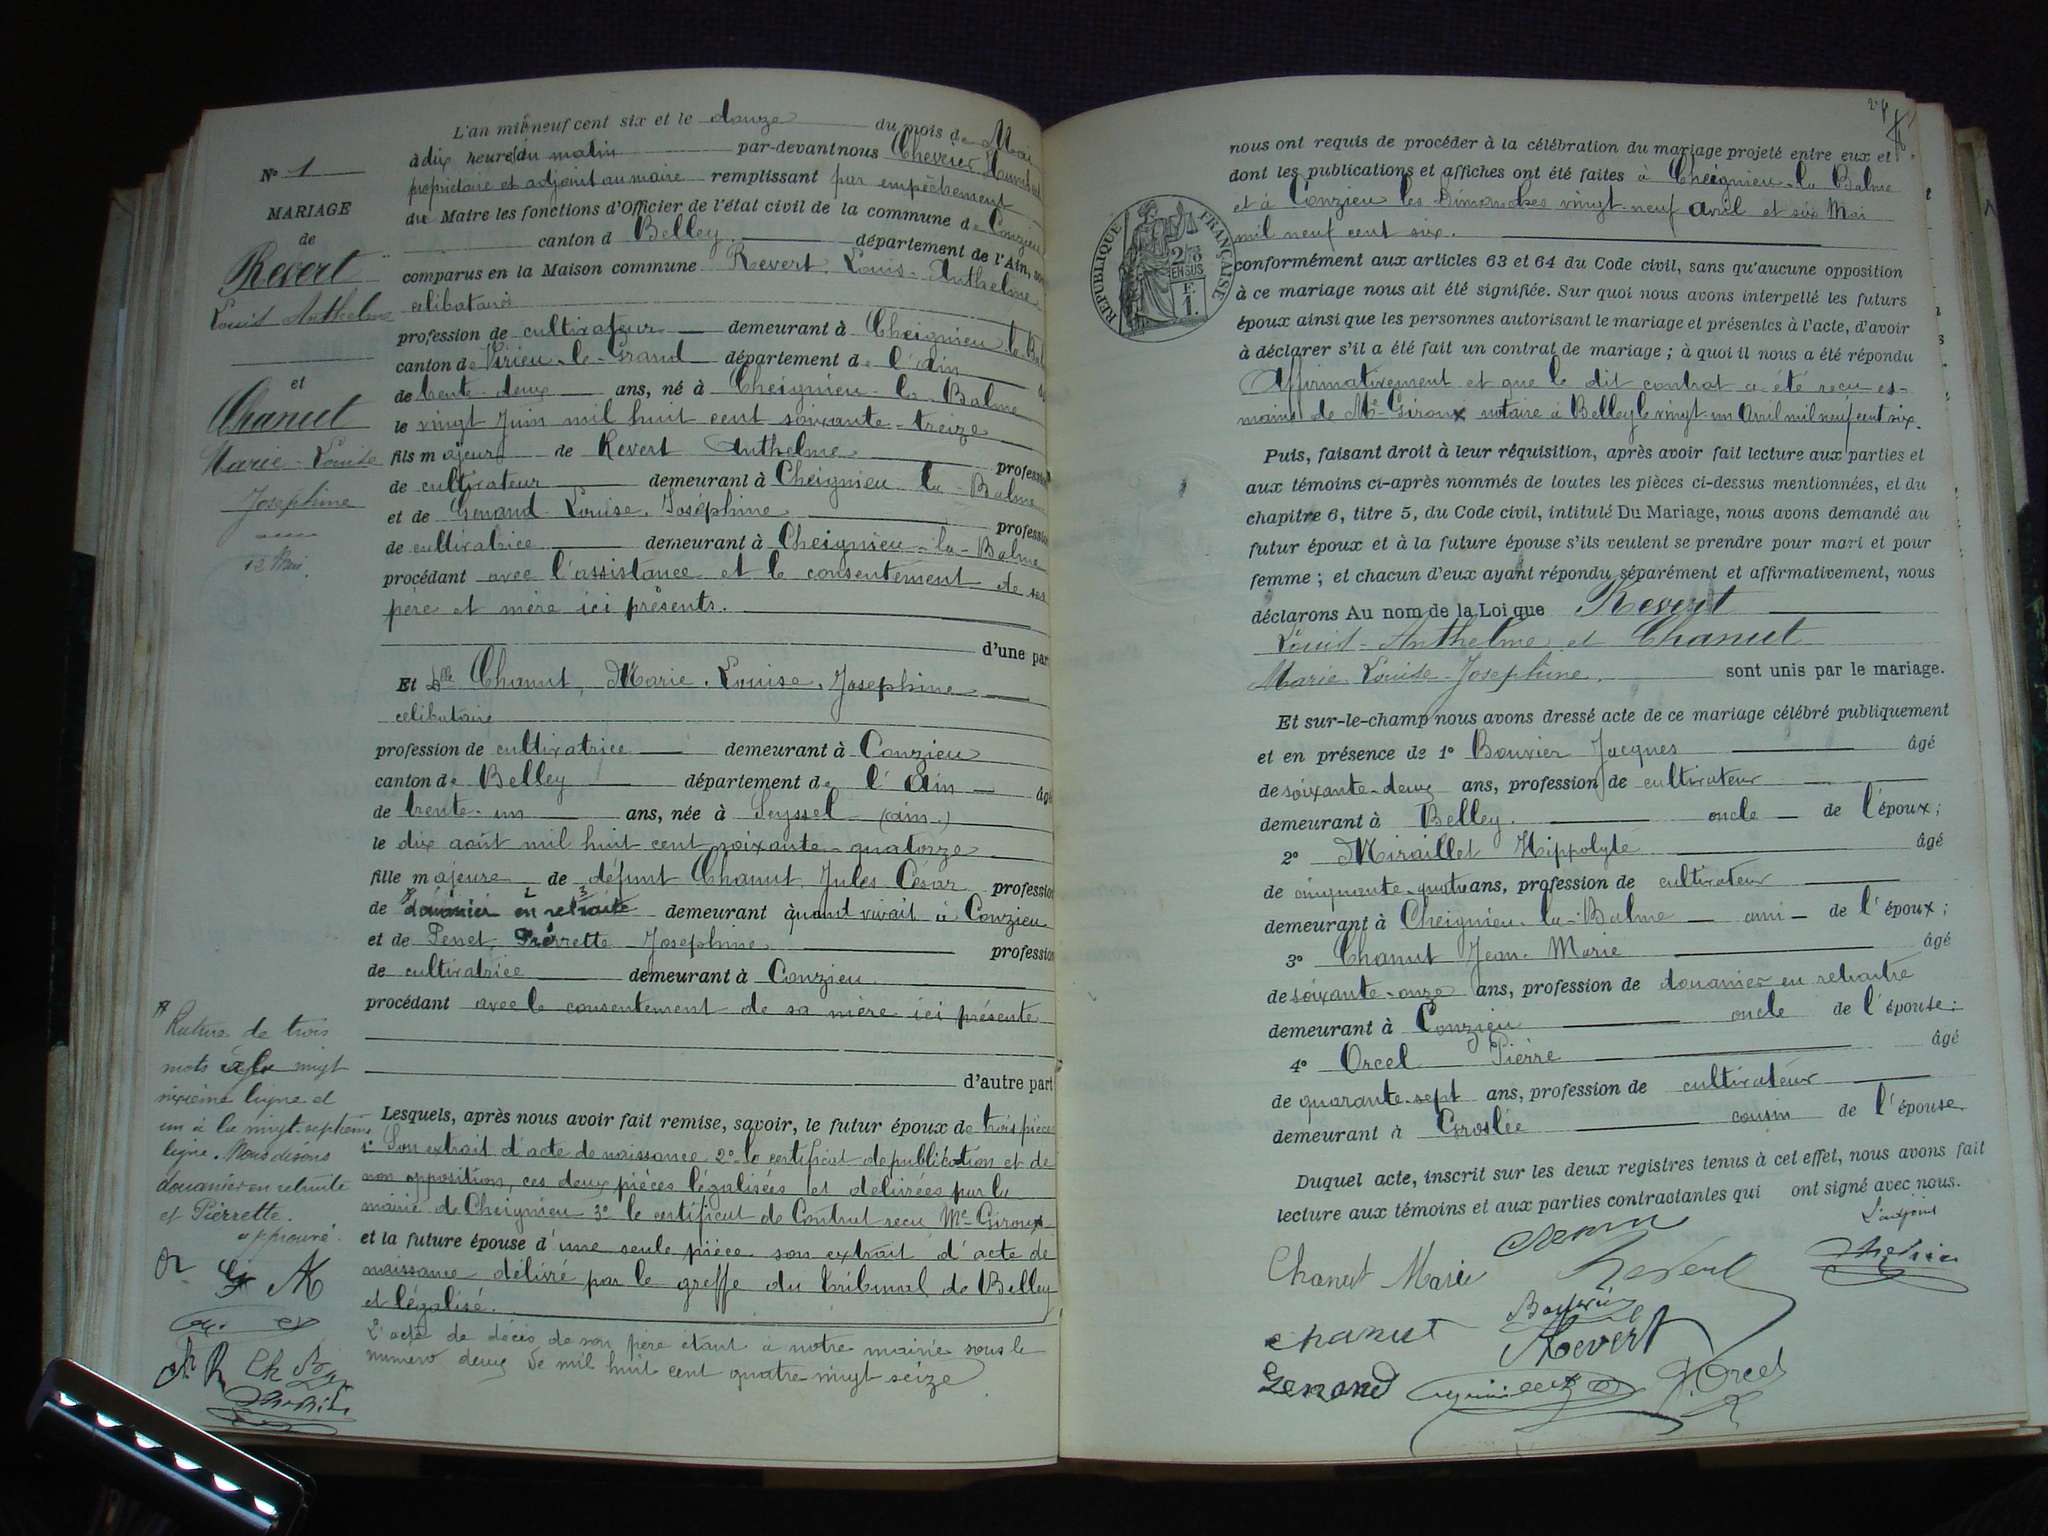 N° 1
MARIAGE
de
Revert
Louis Anthelme
et
Chanut
Marie-Louise
Josephine
12 Mai.
Rature de trois
mots à la vingt
sixième ligne et
un à la vingt septième
ligne. Nous disons
douanier en retraite
et Pierrette.
approuvé.
L'an mil neuf cent six et le douze du mois de Mai
à dix heures du matin par-devant nous Chevrier
propriétaire et adjoint au maire remplissant par empêchement
du Maire les fonctions d'Officier de l'état civil de la commune de Conzieu
canton d Belley. département de l'Ain,
comparus en la Maison commune Revert, Louis-Anthelme
celibataire
profession de cultivateur demeurant à Cheignieu-la-Bal
canton de Virieu-le-Grand département de l'Ain
de trente-deux ans, né à Cheignieu-la-Balme
le vingt Juin mil huit cent soixante-treize
fils majeur de Revert Anthelme profession
de cultivateur demeurant à Cheignieu-la-Balme
et de Genand Louise. Joséphine profession
de cultivatrice demeurant à Cheignieu-la-Balme
procédant avec l'assistance et le consentement de ses
père et mère ici présents.
d'une part
Et Dlle Chanut, Marie. Louise. Josephine
celibataire
profession de cultivatrice demeurant à Conzieu
canton de Belley département de l'Ain âgé
de trente-un ans, née à Seyssel (ain.)
le dix août mil huit cent soixante-quatorze
fille majeure de défunt Chanut, Jules César profession
de douanier en retraite demeurant quand vivait à Conzieu
et de Pesset, Pierrette Josephine profession
de cultivatrice demeurant à Conzieu
procédant avec le consentement de sa mère ici présente
d'autre part
Lesquels, après nous avoir fait remise, savoir, le futur époux de trois pièces
1° Son extrait d'acte de naissance 2° le certificat de publication et de
non opposition, ces deux pièces légalisées et délivrées par la
mairie de Cheignieu 3° le certificat de Contrat recu Me Giroux
et la future épouse d'une seule pièce son extrait d'acte de
naissance délivré par le greffe du tribunal de Belley
et légalisé.
L'acte de décès de son père étant à notre mairie sous le
numéro deux de mil huit cent quatre vingt seize
nous ont requis de procéder à la célébration du mariage projeté entre eux et
dont les publications et affiches ont été faites à Cheignieu-la-Balme
et à Conzieu les Dimanches vingt-neuf avril et six Mai
mil neuf cent six.
RÉPUBLIQUE FRANÇAISE
2/10 EN SUS
F.
1.
conformément aux articles 63 et 64 du Code civil, sans qu'aucune opposition
à ce mariage nous ait été signifiée. Sur quoi nous avons interpellé les futurs
époux ainsi que les personnes autorisant le mariage et présentes à l'acte, d'avoir
à déclarer s'il a été fait un contrat de mariage ; à quoi il nous a été répondu
Affirmativement et que le dit contrat a été recu es-
mains de Me Giroux notaire à Belley le vingt un Avril mil neuf cent six.
Puis, faisant droit à leur réquisition, après avoir fait lecture aux parties et
aux témoins ci-après nommés de toutes les pièces ci-dessus mentionnées, et du
chapitre 6, titre 5, du Code civil, intitulé Du Mariage, nous avons demandé au
futur époux et à la future épouse s'ils veulent se prendre pour mari et pour
femme ; et chacun d'eux ayant répondu séparément et affirmativement, nous
déclarons Au nom de la Loi que Revert
Louis-Anthelme et Chanut
Marie-Louise-Josephine. sont unis par le mariage.
Et sur-le-champ nous avons dressé acte de ce mariage célébré publiquement
et en présence de 1° Bouvier Jacques âgé
de soixante-deux ans, profession de cultivateur
demeurant à Belley. oncle de l'époux ;
2° Miraillet Hippolyte âgé
de cinquante-quatre ans, profession de cultivateur
demeurant à Cheignieu-la-Balme ami de l'époux ;
3° Chanut Jean-Marie âgé
de soixante-onze ans, profession de douanier en retraitre
demeurant à Conzieu oncle de l'épouse ;
4° Orcel Pierre âgé
de quarante-sept ans, profession de cultivateur
demeurant à Groslée cousin de l'épouse
Duquel acte, inscrit sur les deux registres tenus à cet effet, nous avons fait
lecture aux témoins et aux parties contractantes qui ont signé avec nous.
L'adjoint
Chanut Marie Revert Chevrier
Bouvier
chanut Revert
Genand Orcel